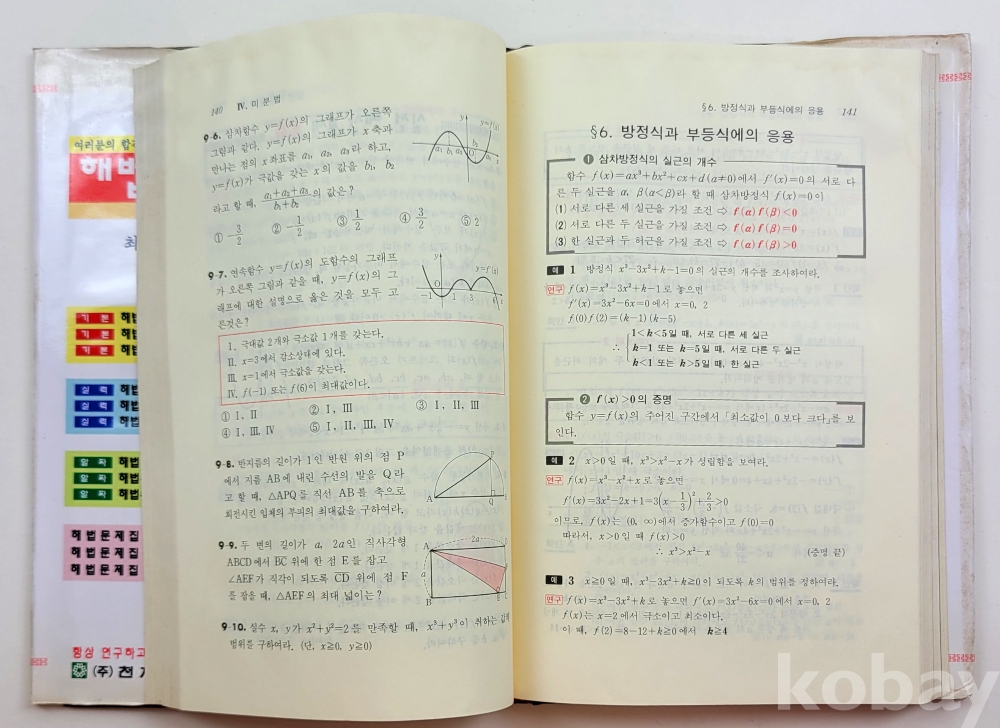 여러분의 합격
해법
최
기 본 해법
기 본 해법
기 본 해법
실 력 해법
실 력 해법
실 력 해법
알 짜 해법
알 짜 해법
알 짜 해법
해법문제집
해법문제집
해법문제집
항상 연구하고
(주) 천
140 Ⅳ. 미 분 법
9-6. 삼차함수 y=f(x)의 그래프가 오른쪽
그림과 같다. y=f(x)의 그래프가 x축과
만나는 점의 x좌표를 a₁, a₂, a₃라 하고,
y=f(x)가 극값을 갖는 x의 값을 b₁, b₂
라고 할 때, (a₁+a₂+a₃)/(b₁+b₂)의 값은?
① -3/2 ② -1/2 ③ 1/2 ④ 3/2 ⑤ 2
9-7. 연속함수 y=f(x)의 도함수의 그래프
가 오른쪽 그림과 같을 때, y=f(x)의 그
래프에 대한 설명으로 옳은 것을 모두 고
른것은?
Ⅰ. 극대값 2개와 극소값 1개를 갖는다.
Ⅱ. x=3에서 감소상태에 있다.
Ⅲ. x=1에서 극소값을 갖는다.
Ⅳ. f(-1) 또는 f(6)이 최대값이다.
① Ⅰ, Ⅱ ② Ⅰ, Ⅲ ③ Ⅰ, Ⅱ, Ⅲ
④ Ⅰ, Ⅲ, Ⅳ ⑤ Ⅰ, Ⅱ, Ⅲ, Ⅳ
9-8. 반지름의 길이가 1인 반원 위의 점 P
에서 지름 AB에 내린 수선의 발을 Q라
고 할 때, △APQ를 직선 AB를 축으로
회전시킨 입체의 부피의 최대값을 구하여라.
A P Q
9-9. 두 변의 길이가 a, 2a인 직사각형
ABCD에서 BC 위에 한 점 E를 잡고
∠AEF가 직각이 되도록 CD 위에 점 F
를 잡을 때, △AEF의 최대 넓이는?
2a
A
a
B E
9-10. 실수 x, y가 x²+y²=2를 만족할 때, x³+y³이 취하는 값의
범위를 구하여라. (단, x≥0, y≥0)
§6. 방정식과 부등식에의 응용 141
§6. 방정식과 부등식에의 응용
❶ 삼차방정식의 실근의 개수
함수 f(x)=ax³+bx²+cx+d(a≠0)에서 f'(x)=0의 서로 다
른 두 실근을 α, β(α<β)라 할 때 삼차방정식 f(x)=0이
(1) 서로 다른 세 실근을 가질 조건 ⇨ f(α)f(β)<0
(2) 서로 다른 두 실근을 가질 조건 ⇨ f(α)f(β)=0
(3) 한 실근과 두 허근을 가질 조건 ⇨ f(α)f(β)>0
예 1 방정식 x³-3x²+k-1=0의 실근의 개수를 조사하여라.
연구 f(x)=x³-3x²+k-1로 놓으면
f'(x)=3x²-6x=0에서 x=0, 2
f(0)f(2)=(k-1)(k-5)
1<k<5일 때, 서로 다른 세 실근
∴ k=1 또는 k=5일 때, 서로 다른 두 실근
k<1 또는 k>5일 때, 한 실근
❷ f(x)>0의 증명
함수 y=f(x)의 주어진 구간에서 「최소값이 0보다 크다」를 보
인다.
예 2 x>0일 때, x³>x²-x가 성립함을 보여라.
연구 f(x)=x³-x²+x로 놓으면
f'(x)=3x²-2x+1=3(x-1/3)²+2/3>0
이므로, f(x)는 (0, ∞)에서 증가함수이고 f(0)=0
따라서, x>0일 때 f(x)>0
∴ x³>x²-x (증명 끝)
예 3 x≥0일 때, x³-3x²+k≥0이 되도록 k의 범위를 정하여라.
연구 f(x)=x³-3x²+k로 놓으면 f'(x)=3x²-6x=0에서 x=0, 2
f(x)는 x=2에서 극소이고 최소이다.
이 때, f(2)=8-12+k≥0에서 k≥4
kobay